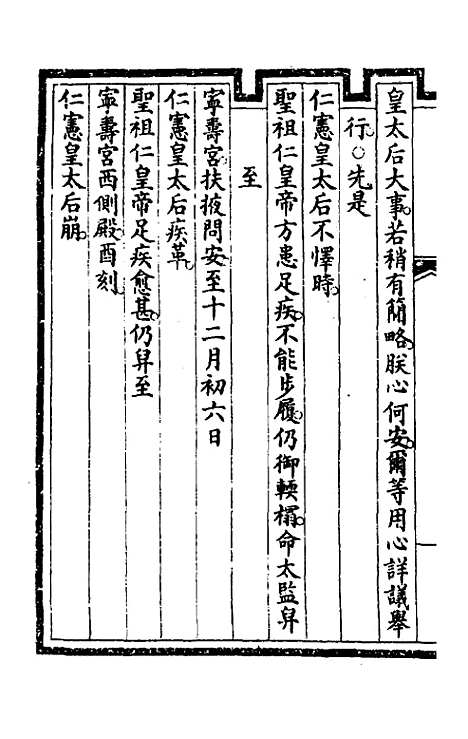 皇太后大事。若稍有簡略。朕心何安。爾等用心詳議舉
行。○先是
仁憲皇太后不懌時。
聖祖仁皇帝方患足疾。不能步履。仍御輭榻。命太監舁
至
寧壽宮。扶掖問安。至十二月初六日
仁憲皇太后疾革。
聖祖仁皇帝足疾愈甚。仍舁至
寧壽宮西側殿。酉刻。
仁憲皇太后崩。